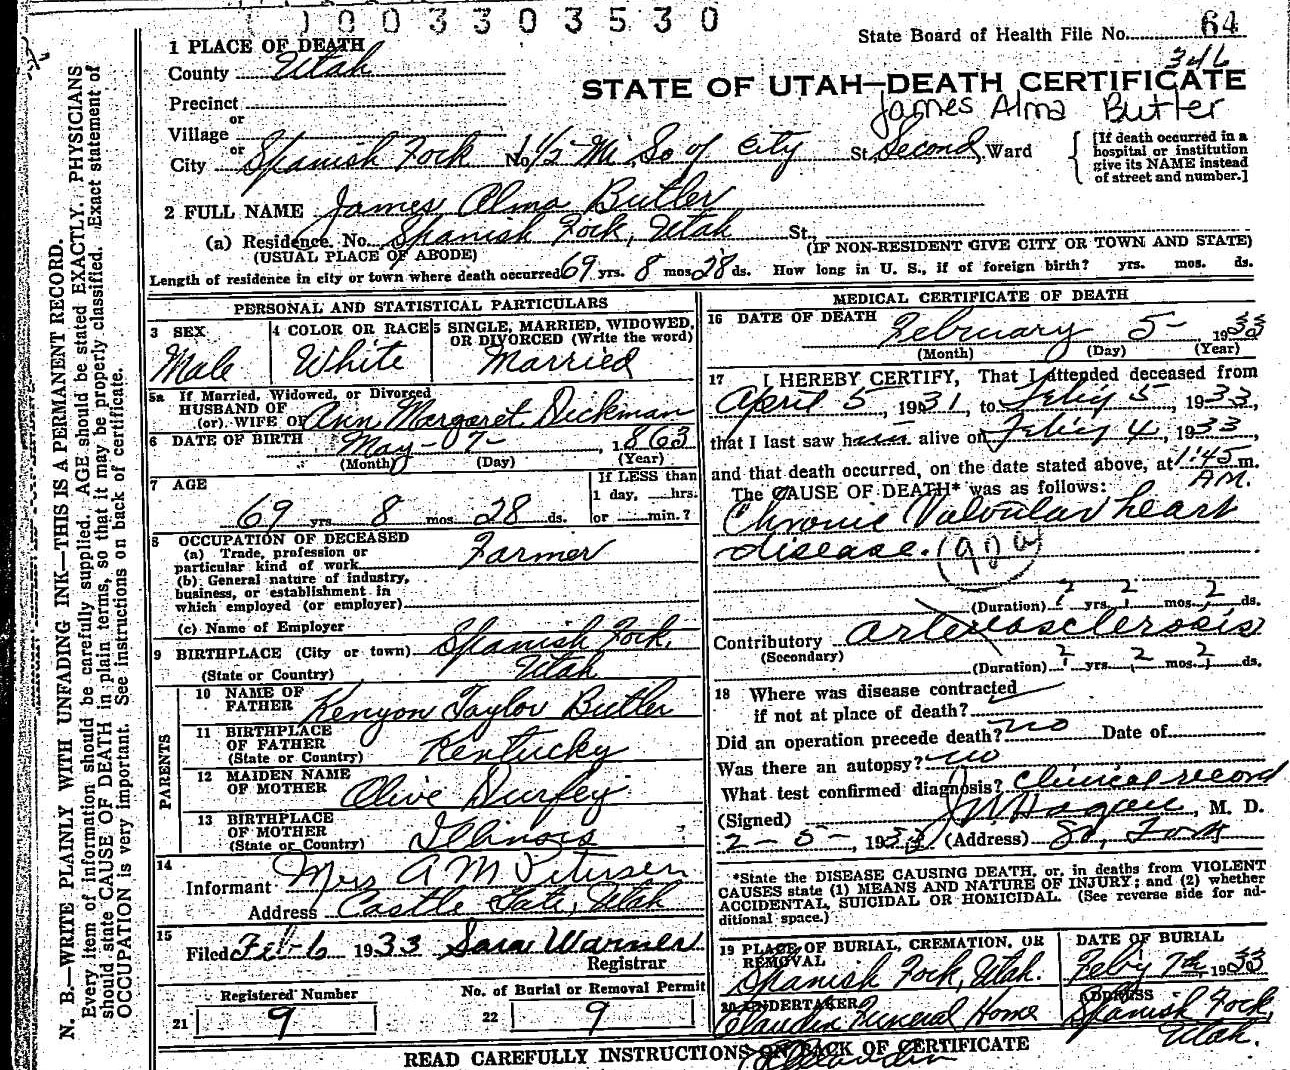 1003303530
State Board of Health File No. 64
346
1 PLACE OF DEATH
County Utah
STATE OF UTAH—DEATH CERTIFICATE
James Alma Butler
Precinct
or
Village
or
City Spanish Fork No. 1/2 Mi So of City St. Second Ward
[If death occurred in a hospital or institution give its NAME instead of street and number.]
2 FULL NAME James Alma Butler
(a) Residence. No. Spanish Fork, Utah St.,
(USUAL PLACE OF ABODE) (IF NON-RESIDENT GIVE CITY OR TOWN AND STATE)
Length of residence in city or town where death occurred 69 yrs. 8 mos. 28 ds. How long in U. S., if of foreign birth? yrs. mos. ds.
PERSONAL AND STATISTICAL PARTICULARS
3 SEX
Male
4 COLOR OR RACE
White
5 SINGLE, MARRIED, WIDOWED, OR DIVORCED (Write the word)
Married
5a If Married, Widowed, or Divorced
HUSBAND OF
(or) WIFE OF Ann Margaret Dickman
6 DATE OF BIRTH May - 7 - , 1863
(Month) (Day) (Year)
7 AGE
69 yrs. 8 mos. 28 ds.
If LESS than
1 day, ___ hrs.
or ___ min.?
8 OCCUPATION OF DECEASED
(a) Trade, profession or
particular kind of work Farmer
(b) General nature of industry,
business, or establishment in
which employed (or employer)
(c) Name of Employer
9 BIRTHPLACE (City or town) Spanish Fork,
(State or Country) Utah
PARENTS
10 NAME OF FATHER Kenyon Taylor Butler
11 BIRTHPLACE OF FATHER
(State or Country) Kentucky
12 MAIDEN NAME OF MOTHER Olive Durfey
13 BIRTHPLACE OF MOTHER
(State or Country) Illinois
14
Informant Mrs A M Petersen
Address Castle Gate, Utah
15
Filed Feb-6 1933 Sara Warner
Registrar
Registered Number
21 9
No. of Burial or Removal Permit
22 9
MEDICAL CERTIFICATE OF DEATH
16 DATE OF DEATH February 5 - 1933
(Month) (Day) (Year)
17 I HEREBY CERTIFY, That I attended deceased from
April 5, 1931, to Feb'y 5, 1933,
that I last saw him alive on Feb'y 4, 1933,
and that death occurred, on the date stated above, at 1:45 m.
A.M.
The CAUSE OF DEATH* was as follows:
Chronic Valvular heart
disease. (92a)
(Duration) ? yrs. ? mos. ? ds.
Contributory arteriosclerosis
(Secondary)
(Duration) ? yrs. ? mos. ? ds.
18 Where was disease contracted
if not at place of death?
Did an operation precede death? no Date of
Was there an autopsy? no
What test confirmed diagnosis? Clinical record
(Signed) J W Hagan, M. D.
2-5-, 1933 (Address) Sp. Fork
*State the DISEASE CAUSING DEATH, or, in deaths from VIOLENT
CAUSES state (1) MEANS AND NATURE OF INJURY; and (2) whether
ACCIDENTAL, SUICIDAL OR HOMICIDAL. (See reverse side for ad-
ditional space.)
19 PLACE OF BURIAL, CREMATION, OR REMOVAL
Spanish Fork, Utah.
DATE OF BURIAL
Feb'y 7th, 1933
20 UNDERTAKER
Claudin Funeral Home
ADDRESS
Spanish Fork,
Utah.
READ CAREFULLY INSTRUCTIONS ON BACK OF CERTIFICATE
N. B.—WRITE PLAINLY WITH UNFADING INK—THIS IS A PERMANENT RECORD.
Every item of information should be carefully supplied. AGE should be stated EXACTLY. PHYSICIANS
should state CAUSE OF DEATH in plain terms, so that it may be properly classified. Exact statement of
OCCUPATION is very important. See instructions on back of certificate.